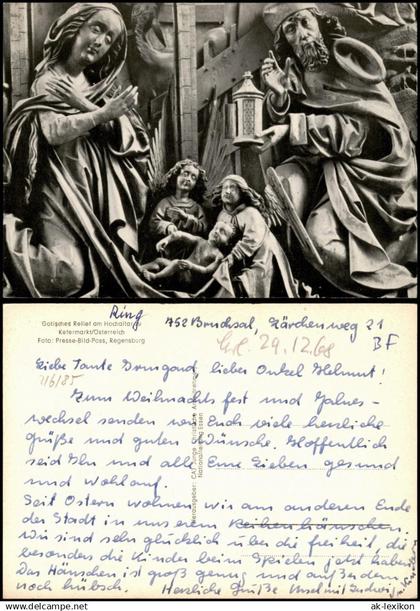 Ring
752 Bruchsal, Lärchenweg 21
Gotisches Relief am Hochaltar zu
Kefermarkt/Österreich
Foto: Presse-Bild-Poss, Regensburg
29.12.68
BF
Liebe Tante Irmgard, lieber Onkel Helmut!
Zum Weihnachtsfest und Jahres-
wechsel senden wir Euch viele herzliche
Grüße und guten Wünsche. Hoffentlich
seid Ihr und alle Eure Lieben gesund
und wohlauf.
Seit Ostern wohnen wir am anderen Ende
der Stadt in unserem Reihenhäuschen.
Wir sind sehr glücklich über die Freiheit, die
besonders die Kinder beim Spielen jetzt haben.
Das Häuschen ist groß genug und außerdem
noch hübsch. Herzliche Grüße Ursel mit Ludwig
© ak-lexikon.com